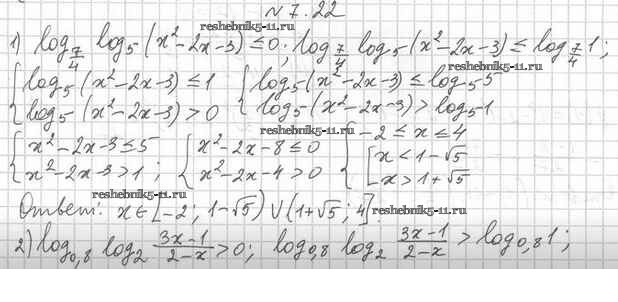 № 7.22
reshebnik5-11.ru
1) log_{7/4} log_5 (x² - 2x - 3) ≤ 0; log_{7/4} log_5 (x² - 2x - 3) ≤ log_{7/4} 1;
{ log_5 (x² - 2x - 3) ≤ 1 { log_5 (x² - 2x - 3) ≤ log_5 5
{ log_5 (x² - 2x - 3) > 0 { log_5 (x² - 2x - 3) > log_5 1
reshebnik5-11.ru
{ x² - 2x - 3 ≤ 5 { x² - 2x - 8 ≤ 0 { -2 ≤ x ≤ 4
{ x² - 2x - 3 > 1; { x² - 2x - 4 > 0 { [ x < 1 - √5
[ x > 1 + √5
reshebnik5-11.ru
Ответ: x ∈ [-2; 1-√5) ∪ (1+√5; 4].
reshebnik5-11.ru
2) log_{0,8} log_2 (3x-1)/(2-x) > 0; log_{0,8} log_2 (3x-1)/(2-x) > log_{0,8} 1;